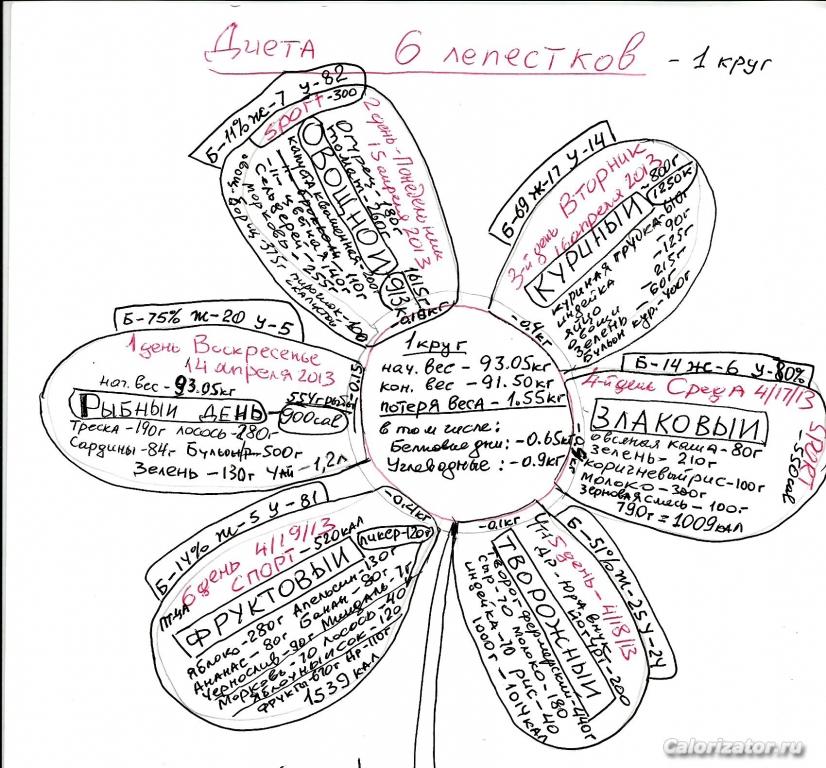 Диета 6 лепестков - 1 круг
Б-75% Ж-20 У-5
1 день Воскресенье
14 апреля 2013
нач. вес - 93.05кг
РЫБНЫЙ ДЕНЬ
554г рыбы
900cal
Треска -190г лосось -280г
Сардины -84г Бульон/р -500г
Зелень -130г Чай -1,2л
-0.15
Б-11% Ж-7 У-82
sport -300
ОВОЩНОЙ
2 день - Понедельник
15 апреля 2013
Огурец - 180г
томат - 260г
капуста квашенная - 200г
-11- брокколи - 110г
-11- цветная 140г
Сельдерей -
морковь - 255г
Борщ - 375г
пирожок - 100
с капустой
1615г
913к
-0.18кг
Б-69 Ж-17 У-14
3-й день Вторник
16 апреля 2013
КУРИНЫЙ
800г
1250к
куриная грудка - 310г
индейка 90г
яйцо -125г
овощи 215г
зелень - 60г
бульон кур. - 400г
-0.4кг
1 круг
нач. вес - 93.05кг
кон. вес - 91.50кг
потеря веса - 1.55кг
в том числе:
Белковые дни: -0.65кг
Углеводные: -0.9кг
Б-14 Ж-6 У-80%
4-й день Среда 4/17/13
ЗЛАКОВЫЙ
SPORT
550cal
овсяная каша - 80г
зелень - 210г
коричневый рис - 100г
молоко - 300г
зерновая смесь - 100г
790г = 1009кал
Б-51% Ж-25 У-24
5 день - 4/18/13
ТВОРОЖНЫЙ
творог фермерский - 440г
сыр - 70 молоко - 180
индейка - 70 рис - 40
1000г - 1014кал
йогурт - 200
-0.1кг
Б-14% Ж-5 У-81
6 день 4/19/13
СПОРТ - 520кал
ликер - 120г
ФРУКТОВЫЙ
птица
Яблоко - 280г Апельсин - 130г
Ананас - 80г Банан - 80г
Чернослив - 90г Миндаль - 7г
Морковь - 70 лосось - 40
яблочный сок - 120
фрукты - 670г пр - 110г
1539кал
Calorizator.ru